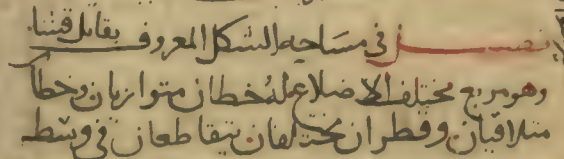 فصل في مساحة الشكل المعروف بقاتل قثنا
وهو مربع مختلف الاضلاع له خطان متوازيان وخطا
متلاقيان وقطران مختلفان يتقاطعان في وسطه